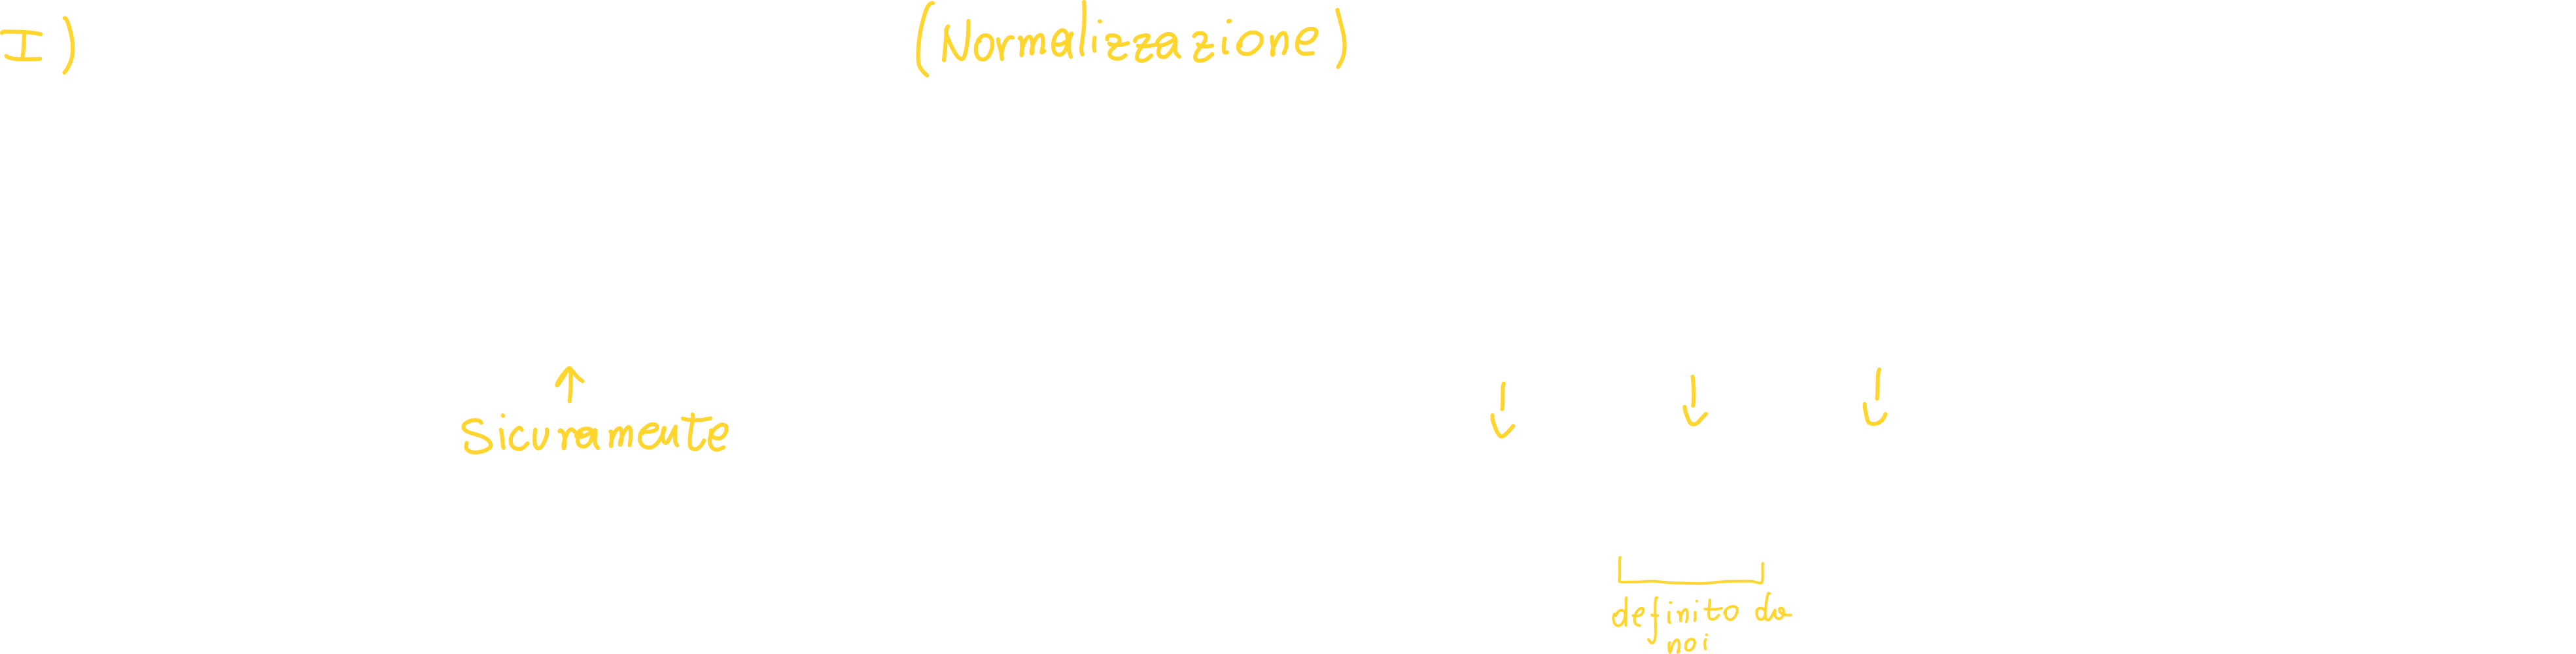 I) (Normalizzazione)
Sicuramente
definito da
noi